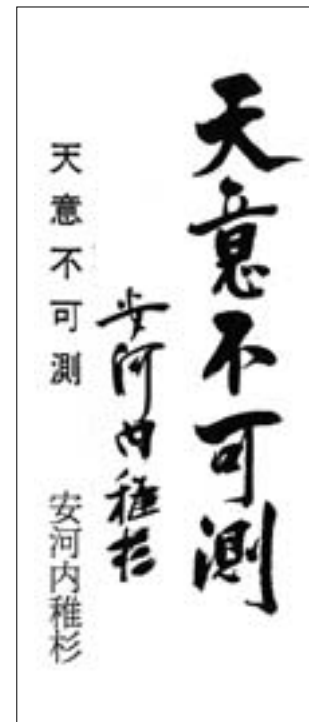 天意不可測
安河内稚杉
天意不可測 安河内稚杉